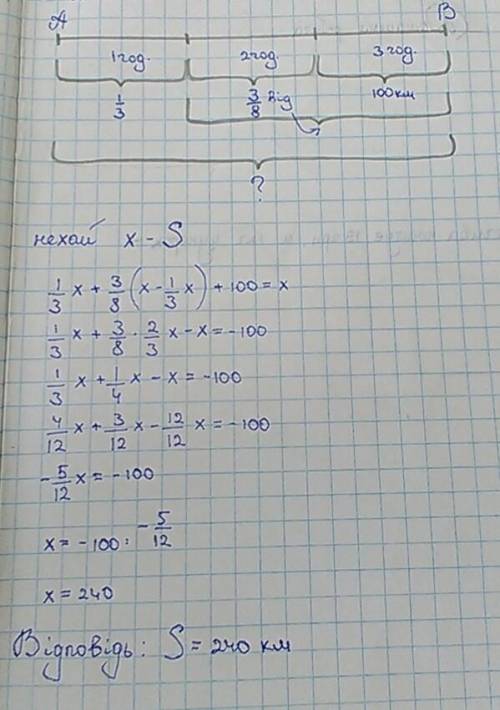 A B
1год. 2год. 3 год.
1/3 3/8 від 100км
?
нехай x - S
1/3 x + 3/8 (x - 1/3 x) + 100 = x
1/3 x + 3/8 · 2/3 x - x = -100
1/3 x + 1/4 x - x = -100
4/12 x + 3/12 x - 12/12 x = -100
- 5/12 x = -100
x = -100 : - 5/12
x = 240
Відповідь: S = 240 км